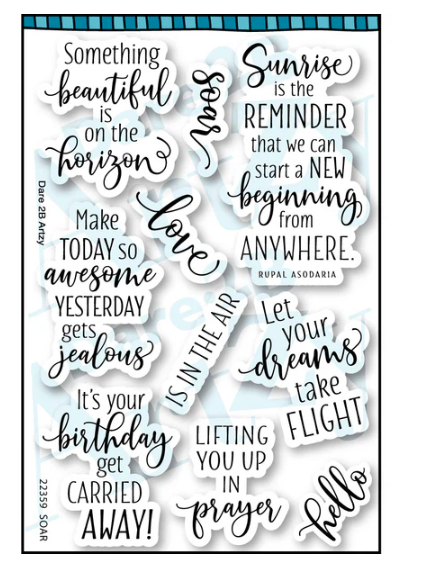 Something
beautiful
is
on the
horizon
soar
Sunrise
is the
REMINDER
that we can
start a NEW
beginning
from
ANYWHERE.
RUPAL ASODARIA
Dare 2B Artzy
love
Make
TODAY so
awesome
YESTERDAY
gets
jealous
IS IN THE AIR
Let
your
dreams
take
FLIGHT
It's your
birthday
get
CARRIED
AWAY!
LIFTING
YOU UP
IN
prayer
hello
22359 SOAR